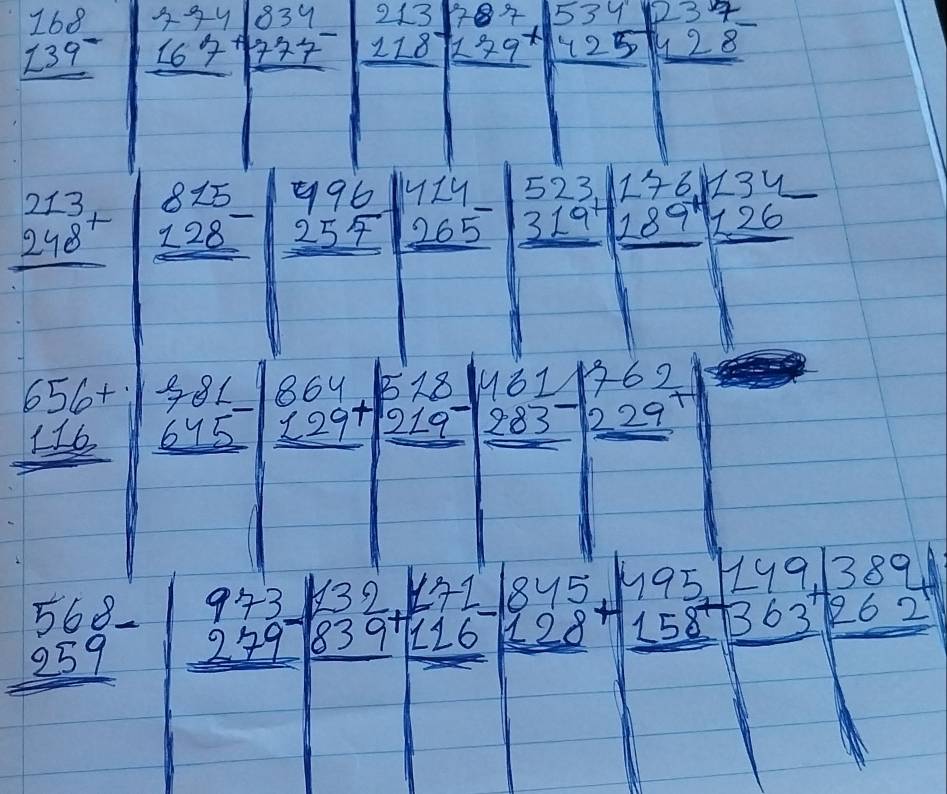 168 774 834 213 787 534 237
139- 167+ 777- 118- 179+ 425- 428-
213 815 496 414 523 176 134
248+ 128- 257- 265- 319+ 189+ 126-
656+ 781 864 518 461 762
116 645- 129+ 219- 283- 229+
568 973 132 171 845 495 149 389
259- 279- 839+ 116- 128+ 158+ 363+ 262+